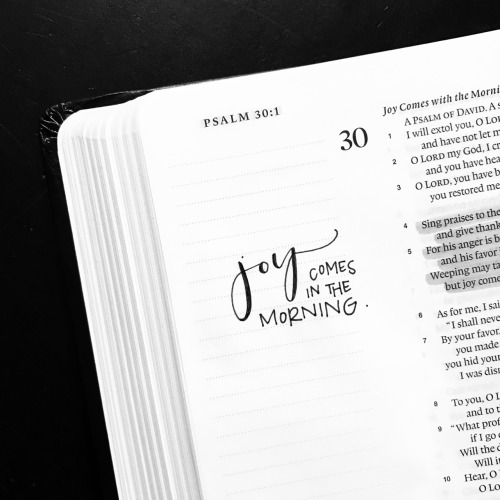 PSALM 30:1
joy COMES
IN THE
MORNING.
30
Joy Comes with the
A PSALM OF DAVID. A
1 I will extol you, O
and have not let
2 O LORD my God, I
and you have
3 O LORD, you have
you restored
4 Sing praises to the
and give
5 For his anger is
and his favor
Weeping may
but joy
6 As for me, I
"I shall
7 By your favor,
you made
you hid your
I was
8 To you, O
and to
9 "What
if I go
Will the
Will
10 Hear, O
O